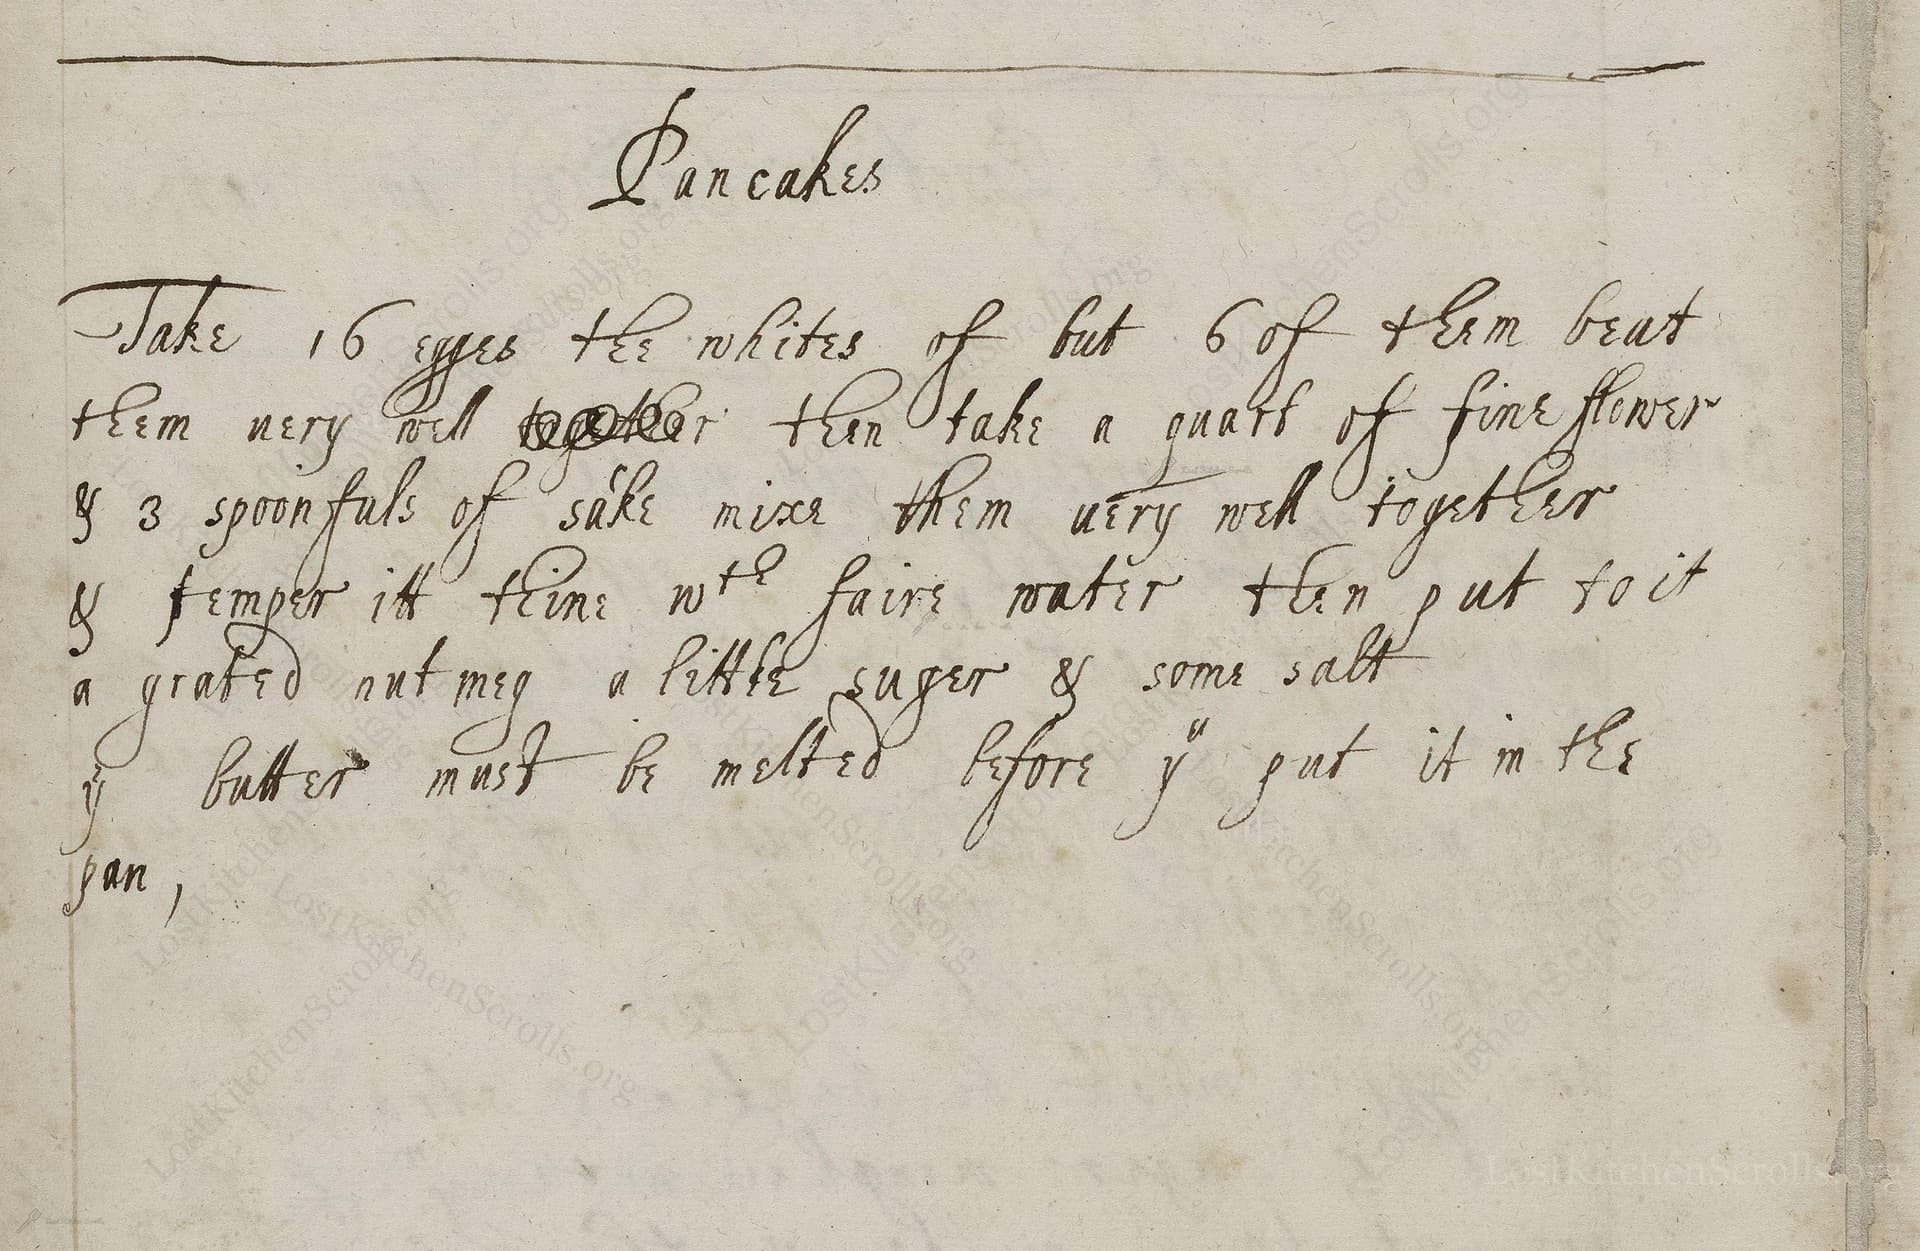 Pancakes
Take 16 egges the whites of but 6 of them beat
them uery well together then take a quart of fine flower
& 3 spoonfuls of sake mixe them uery well together
& temper itt thine wth faire water then put to it
a grated nutmeg a little suger & some salt
ye butter must be melted before yu put it in the
pan,
LostKitchenScrolls.org